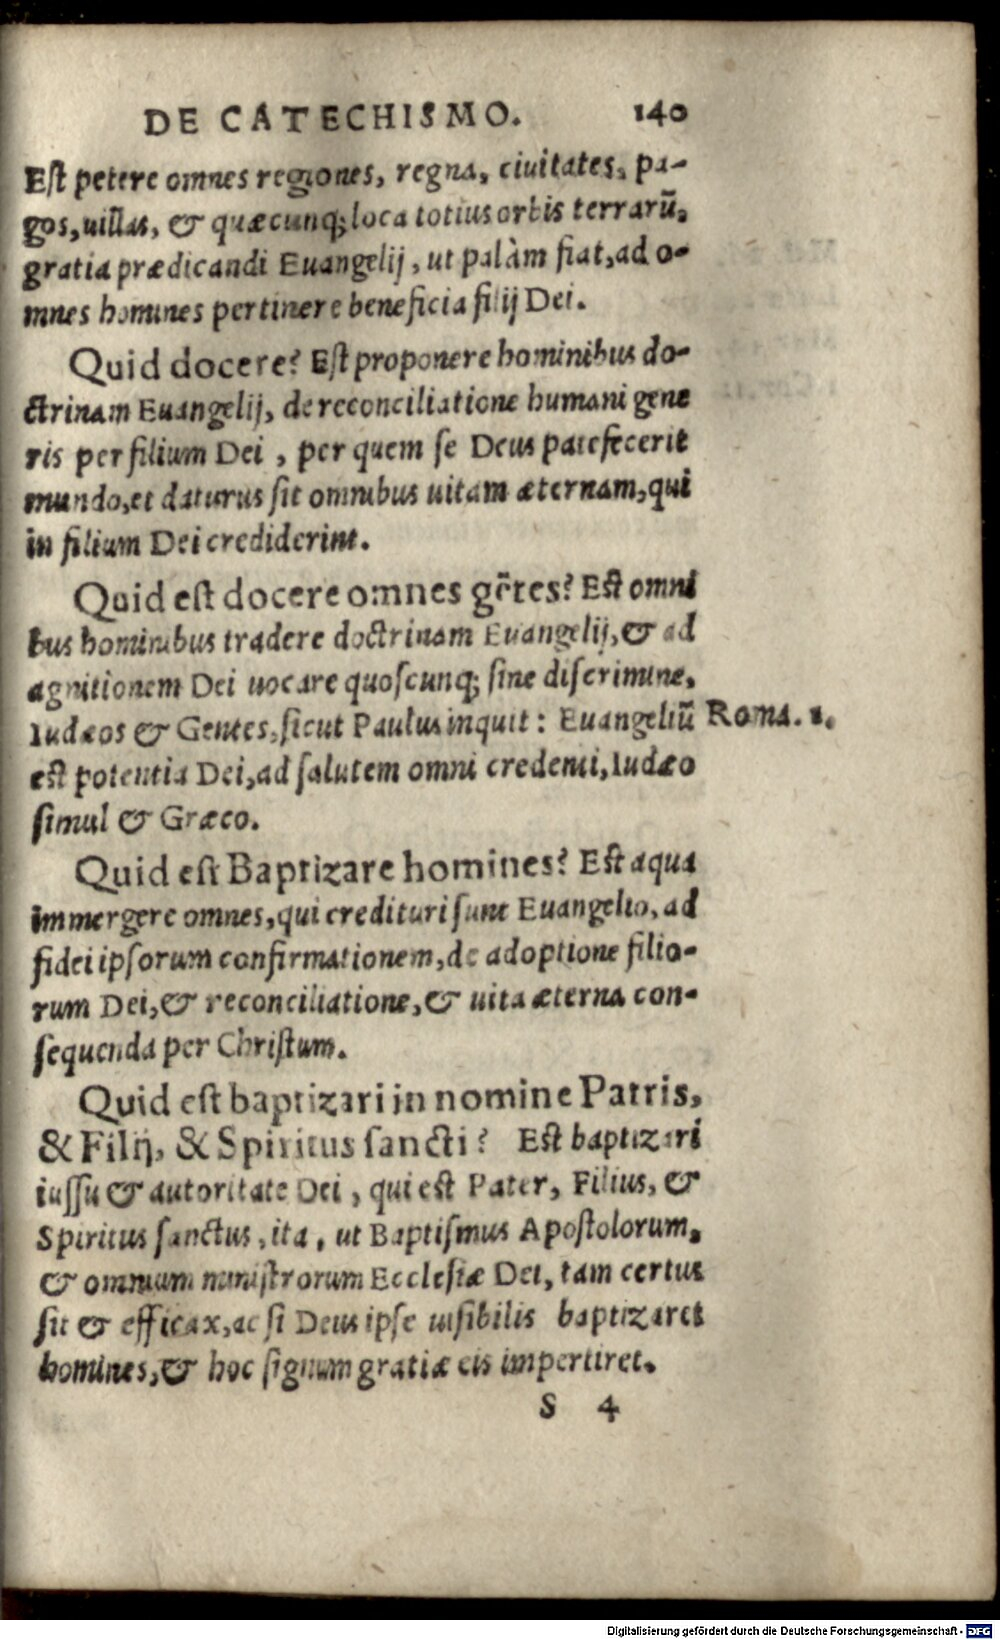 DE CATECHISMO. 140
Est petere omnes regiones, regna, ciuitates, pa-
gos, uillas, & quæcunq; loca totius orbis terrarũ,
gratia prædicandi Euangelij, ut palàm fiat, ad o-
mnes homines pertinere beneficia filij Dei.
Quid docere? Est proponere hominibus do-
ctrinam Euangelij, de reconciliatione humani gene
ris per filium Dei, per quem se Deus patefecerit
mundo, et daturus sit omnibus uitam æternam, qui
in filium Dei crediderint.
Quid est docere omnes gẽtes? Est omni
bus hominibus tradere doctrinam Euangelij, & ad
agnitionem Dei uocare quoscunq; sine discrimine,
Iudæos & Gentes, sicut Paulus inquit: Euangeliũ Roma. 1.
est potentia Dei, ad salutem omni credenti, Iudæo
simul & Græco.
Quid est Baptizare homines? Est aqua
immergere omnes, qui credituri sunt Euangelio, ad
fidei ipsorum confirmationem, de adoptione filio-
rum Dei, & reconciliatione, & uita æterna con-
sequenda per Christum.
Quid est baptizari in nomine Patris,
& Filij, & Spiritus sancti? Est baptizari
iussu & autoritate Dei, qui est Pater, Filius, &
Spiritus sanctus, ita, ut Baptismus Apostolorum,
& omnium ministrorum Ecclesiæ Dei, tam certus
sit & efficax, ac si Deus ipse uisibilis baptizaret
homines, & hoc signum gratiæ eis impertiret.
S 4
Digitalisierung gefördert durch die Deutsche Forschungsgemeinschaft - DFG